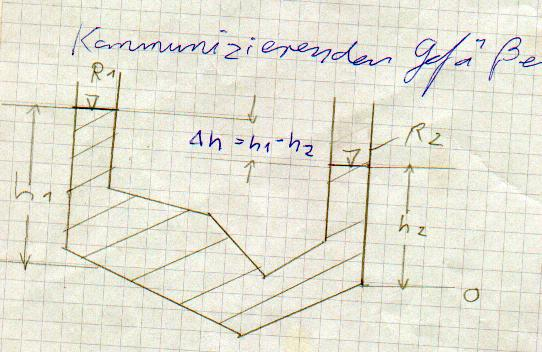 Kommunizierenden Gefäße
R1
Δh = h1 - h2
R2
h1
h2
0